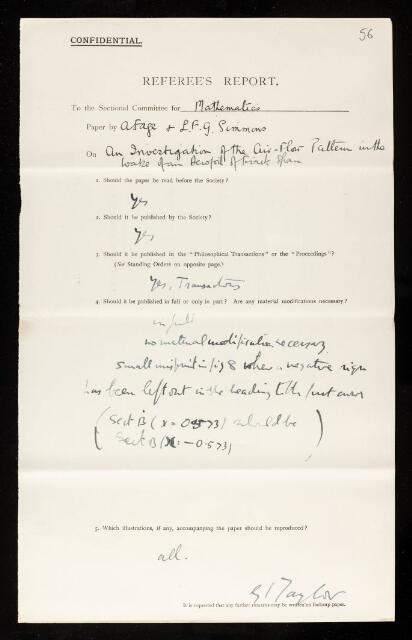 56
CONFIDENTIAL.
REFEREE'S REPORT.
To the Sectional Committee for Mathematics
Paper by A Fage & L.F.G. Simmons
On An Investigation of the Air-Flow Pattern in the
Wake of an Aerofoil of Finite Span
1. Should the paper be read before the Society?
Yes
2. Should it be published by the Society?
Yes
3. Should it be published in the "Philosophical Transactions" or the "Proceedings"?
(See Standing Orders on opposite page.)
Yes, Transactions
4. Should it be published in full or only in part? Are any material modifications necessary?
in full
no material modification necessary.
small misprint in fig 8 where a negative sign
has been left out in the heading to the first curve
(Sect B (x = 0.573) should be
Sect B (x = -0.573))
5. Which illustrations, if any, accompanying the paper should be reproduced?
all.
G I Taylor
It is requested that any further remarks may be written on foolscap paper.